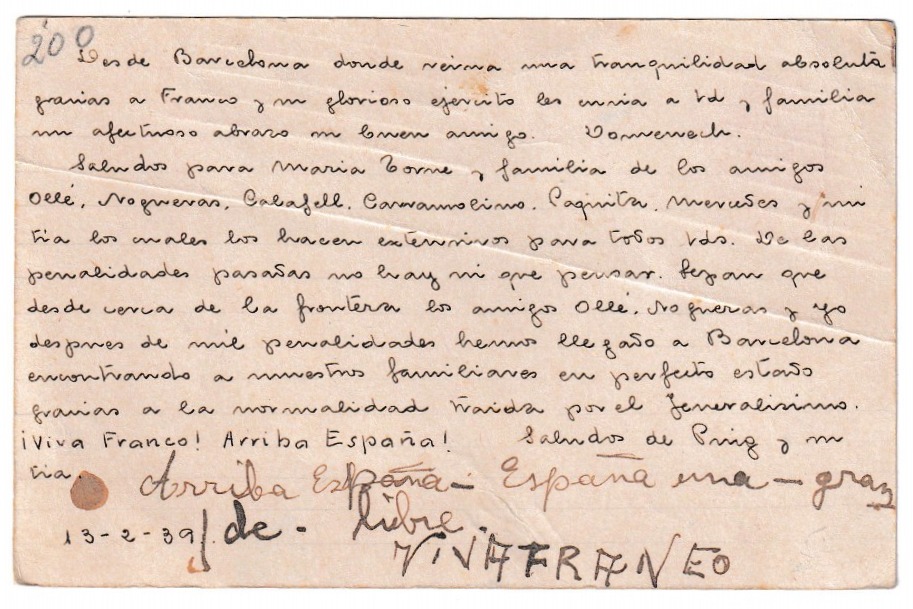 200
Desde Barcelona donde reina una tranquilidad absoluta
gracias a Franco y su glorioso ejército les envia a Vd y familia
un afectuoso abrazo su buen amigo. Domenech.
Saludos para Maria Torne y familia de los amigos
Ollé, Nogueras, Calafell, Carramolino, Paquita, Mercedes y mi
tia los cuales los hacen extensivos para todos Vds. De las
penalidades pasadas no hay ni que pensar. Sepan que
desde cerca de la frontera los amigos Ollé, Nogueras y yo
despues de mil penalidades hemos llegado a Barcelona
encontrando a nuestros familiares en perfecto estado
gracias a la normalidad traida por el Jeneralisimo.
¡Viva Franco! Arriba España! Saludos de Puig y su
tia.
Arriba España - España una - gran
13-2-39 de - libre.
VIVA FRANEO